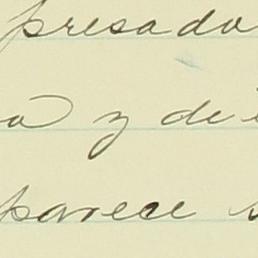 presado
a y de
parece s